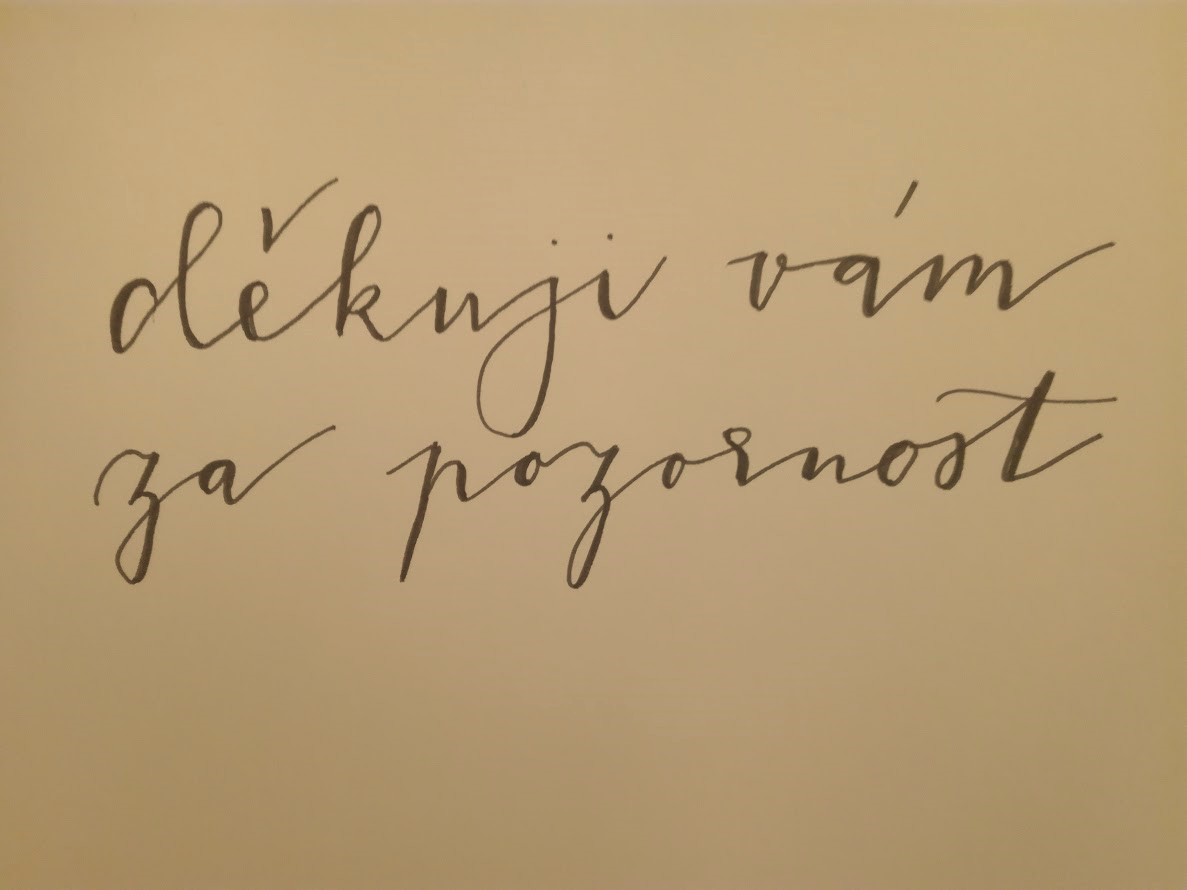 děkuji vám
za pozornost